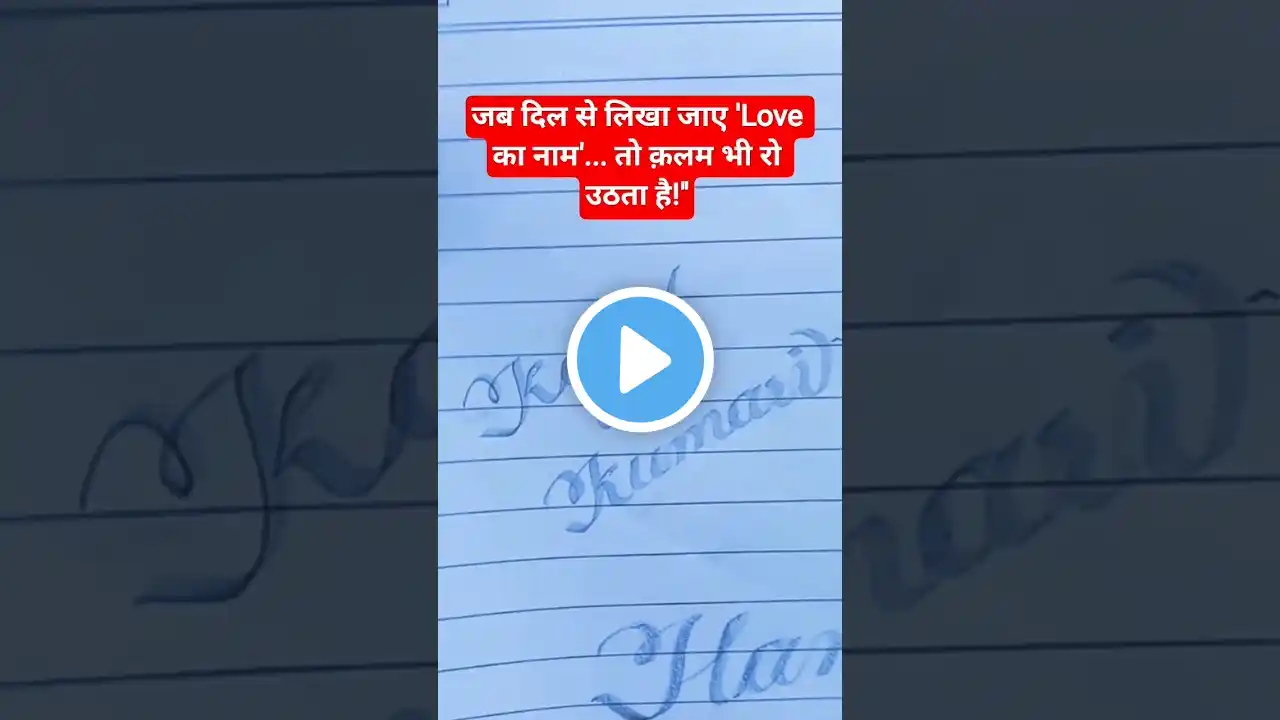 जब दिल से लिखा जाए 'Love
का नाम'... तो क़लम भी रो
उठता है!"
Kumari